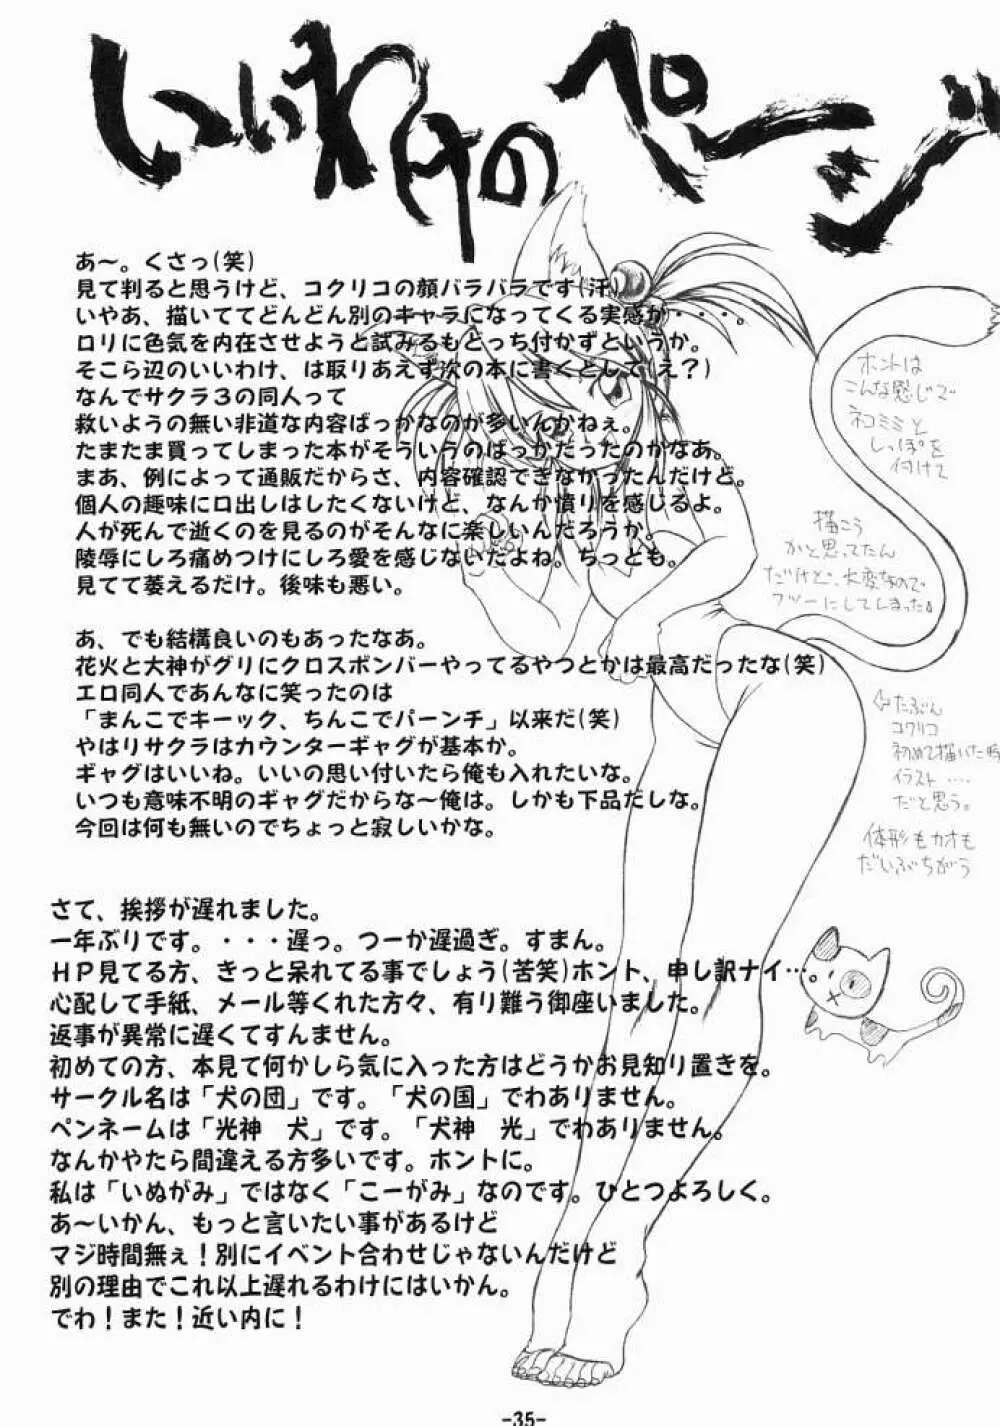 いいわけのページ
あ～。くさっ(笑)
見て判ると思うけど、コクリコの顔バラバラです(汗)
いやあ、描いててどんどん別のキャラになってくる実感が・・・。
ロリに色気を内在させようと試みるもどっち付かずというか。
そこら辺のいいわけ、は取りあえず次の本に書くとして(え？)
なんでサクラ３の同人って
救いようの無い非道な内容ばっかなのが多いんかねぇ。
たまたま買ってしまった本がそういうのばっかだったのかなあ。
まあ、例によって通販だからさ、内容確認できなかったんだけど。
個人の趣味に口出しはしたくないけど、なんか憤りを感じるよ。
人が死んで逝くのを見るのがそんなに楽しいんだろうか。
陵辱にしろ痛めつけにしろ愛を感じないんだよね。ちっとも。
見てて萎えるだけ。後味も悪い。
あ、でも結構良いのもあったなあ。
花火と大神がグリにクロスボンバーやってるやつとかは最高だったな(笑)
エロ同人であんなに笑ったのは
「まんこでキーック、ちんこでパーンチ」以来だ(笑)
やはりサクラはカウンターギャグが基本か。
ギャグはいいね。いいの思い付いたら俺も入れたいな。
いつも意味不明のギャグだからな～俺は。しかも下品だしな。
今回は何も無いのでちょっと寂しいかな。
さて、挨拶が遅れました。
一年ぶりです。・・・遅っ。つーか遅過ぎ。すまん。
ＨＰ見てる方、きっと呆れてる事でしょう(苦笑)ホント、申し訳ナイ…。
心配して手紙、メール等くれた方々、有り難う御座いました。
返事が異常に遅くてすんません。
初めての方、本見て何かしら気に入った方はどうかお見知り置きを。
サークル名は「犬の団」です。「犬の国」でわありません。
ペンネームは「光神　犬」です。「犬神　光」でわありません。
なんかやたら間違える方多いです。ホントに。
私は「いぬがみ」ではなく「こーがみ」なのです。ひとつよろしく。
あ～いかん、もっと言いたい事があるけど
マジ時間無ぇ！別にイベント合わせじゃないんだけど
別の理由でこれ以上遅れるわけにはいかん。
でわ！また！近い内に！
ホントは
こんな感じで
ネコミミと
しっぽを
付けて
描こう
かと思ってたん
だけど、大変なので
フツーにしてしまった。
たぶん
コクリコ
初めて描いた時
イラスト‥‥
だと思う。
体形もカオも
だいぶちがう
-35-